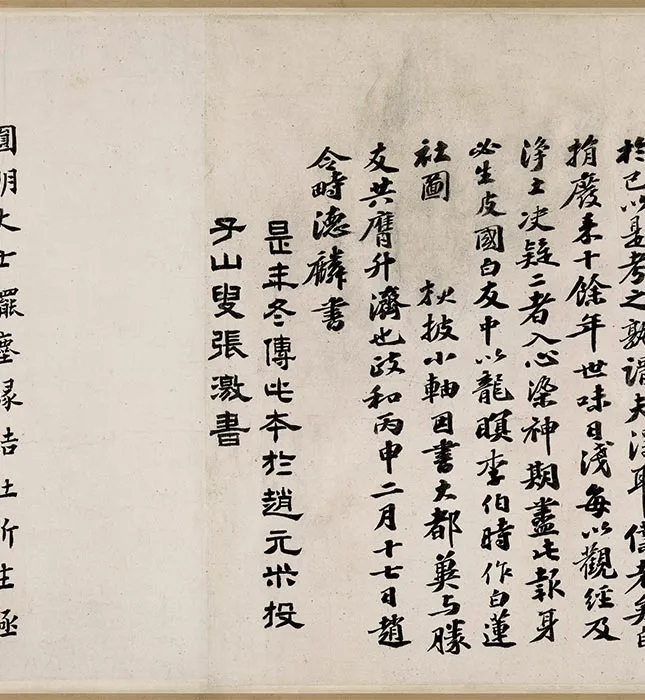 於已以是考之孰謂夫
捐廢来十餘年世味日淺每以觀經及
淨土決疑二者入心染神期盡此報身
必生彼國白友中以龍眠李伯時作白蓮
社圖 披小軸因書大都冀与勝
友共膺升濟也政和丙申二月十七日趙
令畤德麟書
是年冬傳此本於趙元米投
子山叟張激書
大士罷塵緣結社